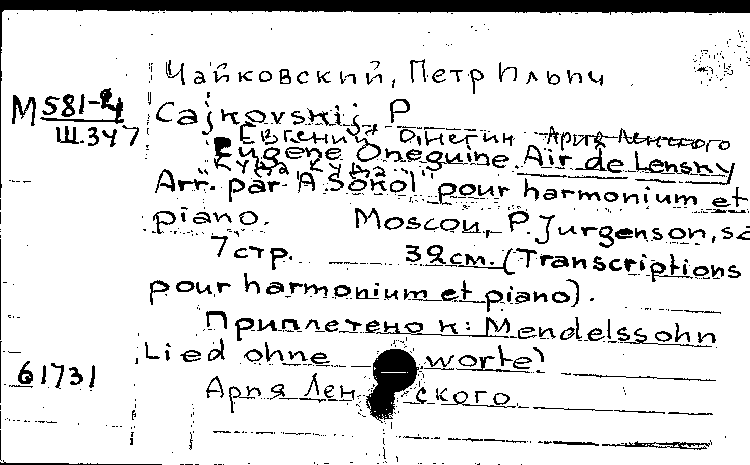 Чайковский, Петр Ильич
М 581-24
Ш.347
Cajkovskij, P
Евгений Онегин Ария Ленского
Eugene Oneguine. Air de Lensky
"Куда Куда"
Arr. par A. Sokol pour harmonium et
piano. Moscou, P. Jurgenson, sa
7 стр. 32 см. (Transcriptions
pour harmonium et piano).
Приплетено к: Mendelssohn
Lied ohne worte)
61731
Ария Ленского